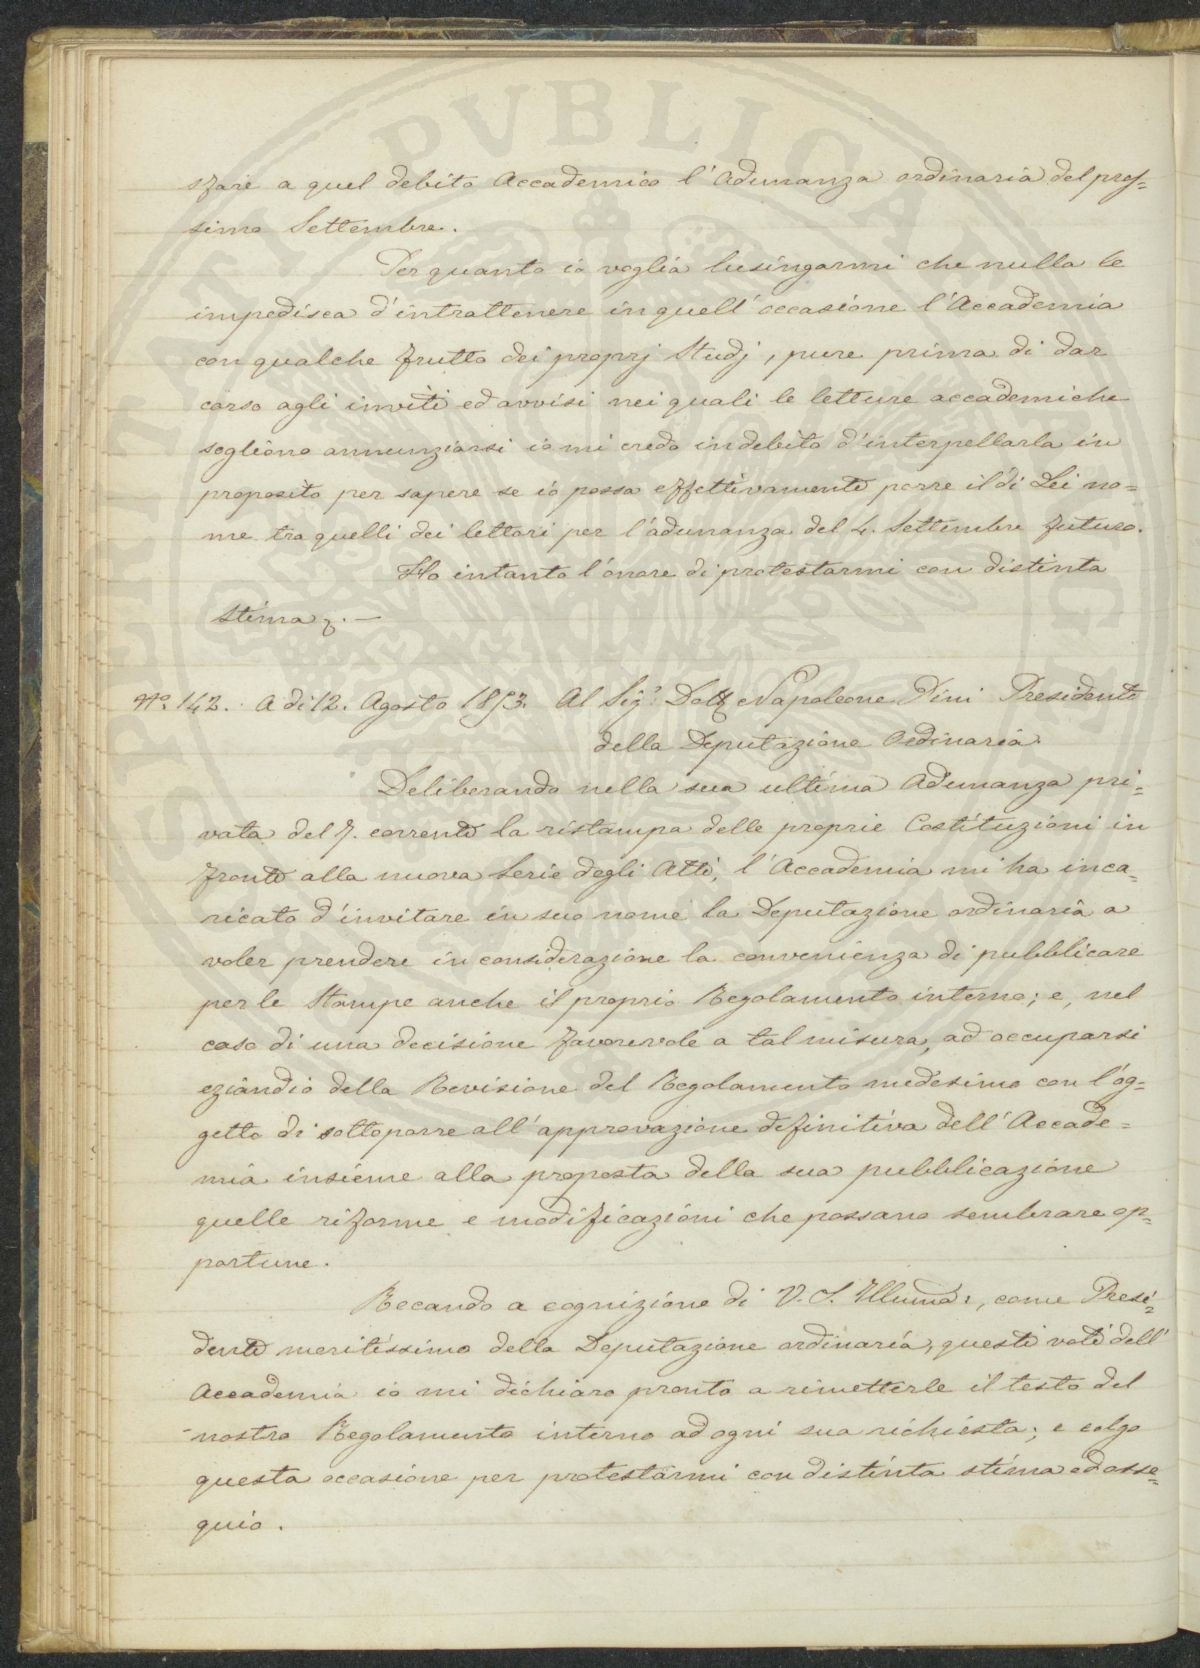 sfare a quel debito Accademico l'Adunanza ordinaria del pros=
simo Settembre.
Per quanto io voglia lusingarmi che nulla le
impedisca d'intrattenere in quell'occasione l'Accademia
con qualche frutto dei proprj Studj, pure prima di dar
corso agli inviti ed avvisi nei quali le letture accademiche
sogliono annunziarsi io mi credo in debito d'interpellarla in
proposito per sapere se io possa effettivamente porre il di Lei no=
me tra quelli dei lettori per l'adunanza del 4. Settembre futuro.
Ho intanto l'onore di protestarmi con distinta
stima &. —
N.o 142. A di 12. Agosto 1853. Al Sig.r Dott. Napoleone Pini Presidente
della Deputazione Ordinaria.
Deliberando nella sua ultima Adunanza pri=
vata del 7. corrente la ristampa delle proprie Costituzioni in
fronte alla nuova Serie degli Atti, l'Accademia mi ha inca=
ricato d'invitare in suo nome la Deputazione ordinaria a
voler prendere in considerazione la convenienza di pubblicare
per le Stampe anche il proprio Regolamento interno; e, nel
caso di una decisione favorevole a tal misura, ad occuparsi
eziandio della Revisione del Regolamento medesimo con l'og=
getto di sottoporre all'approvazione definitiva dell'Accade=
mia insieme alla proposta della sua pubblicazione
quelle riforme e modificazioni che possano sembrare op=
portune.
Recando a cognizione di V. S. Illuma:, come Presi=
dente meritissimo della Deputazione ordinaria, questi voti dell'
Accademia io mi dichiaro pronto a rimetterle il testo del
nostro Regolamento interno ad ogni sua richiesta; e colgo
questa occasione per protestarmi con distinta stima ed osse=
quio.